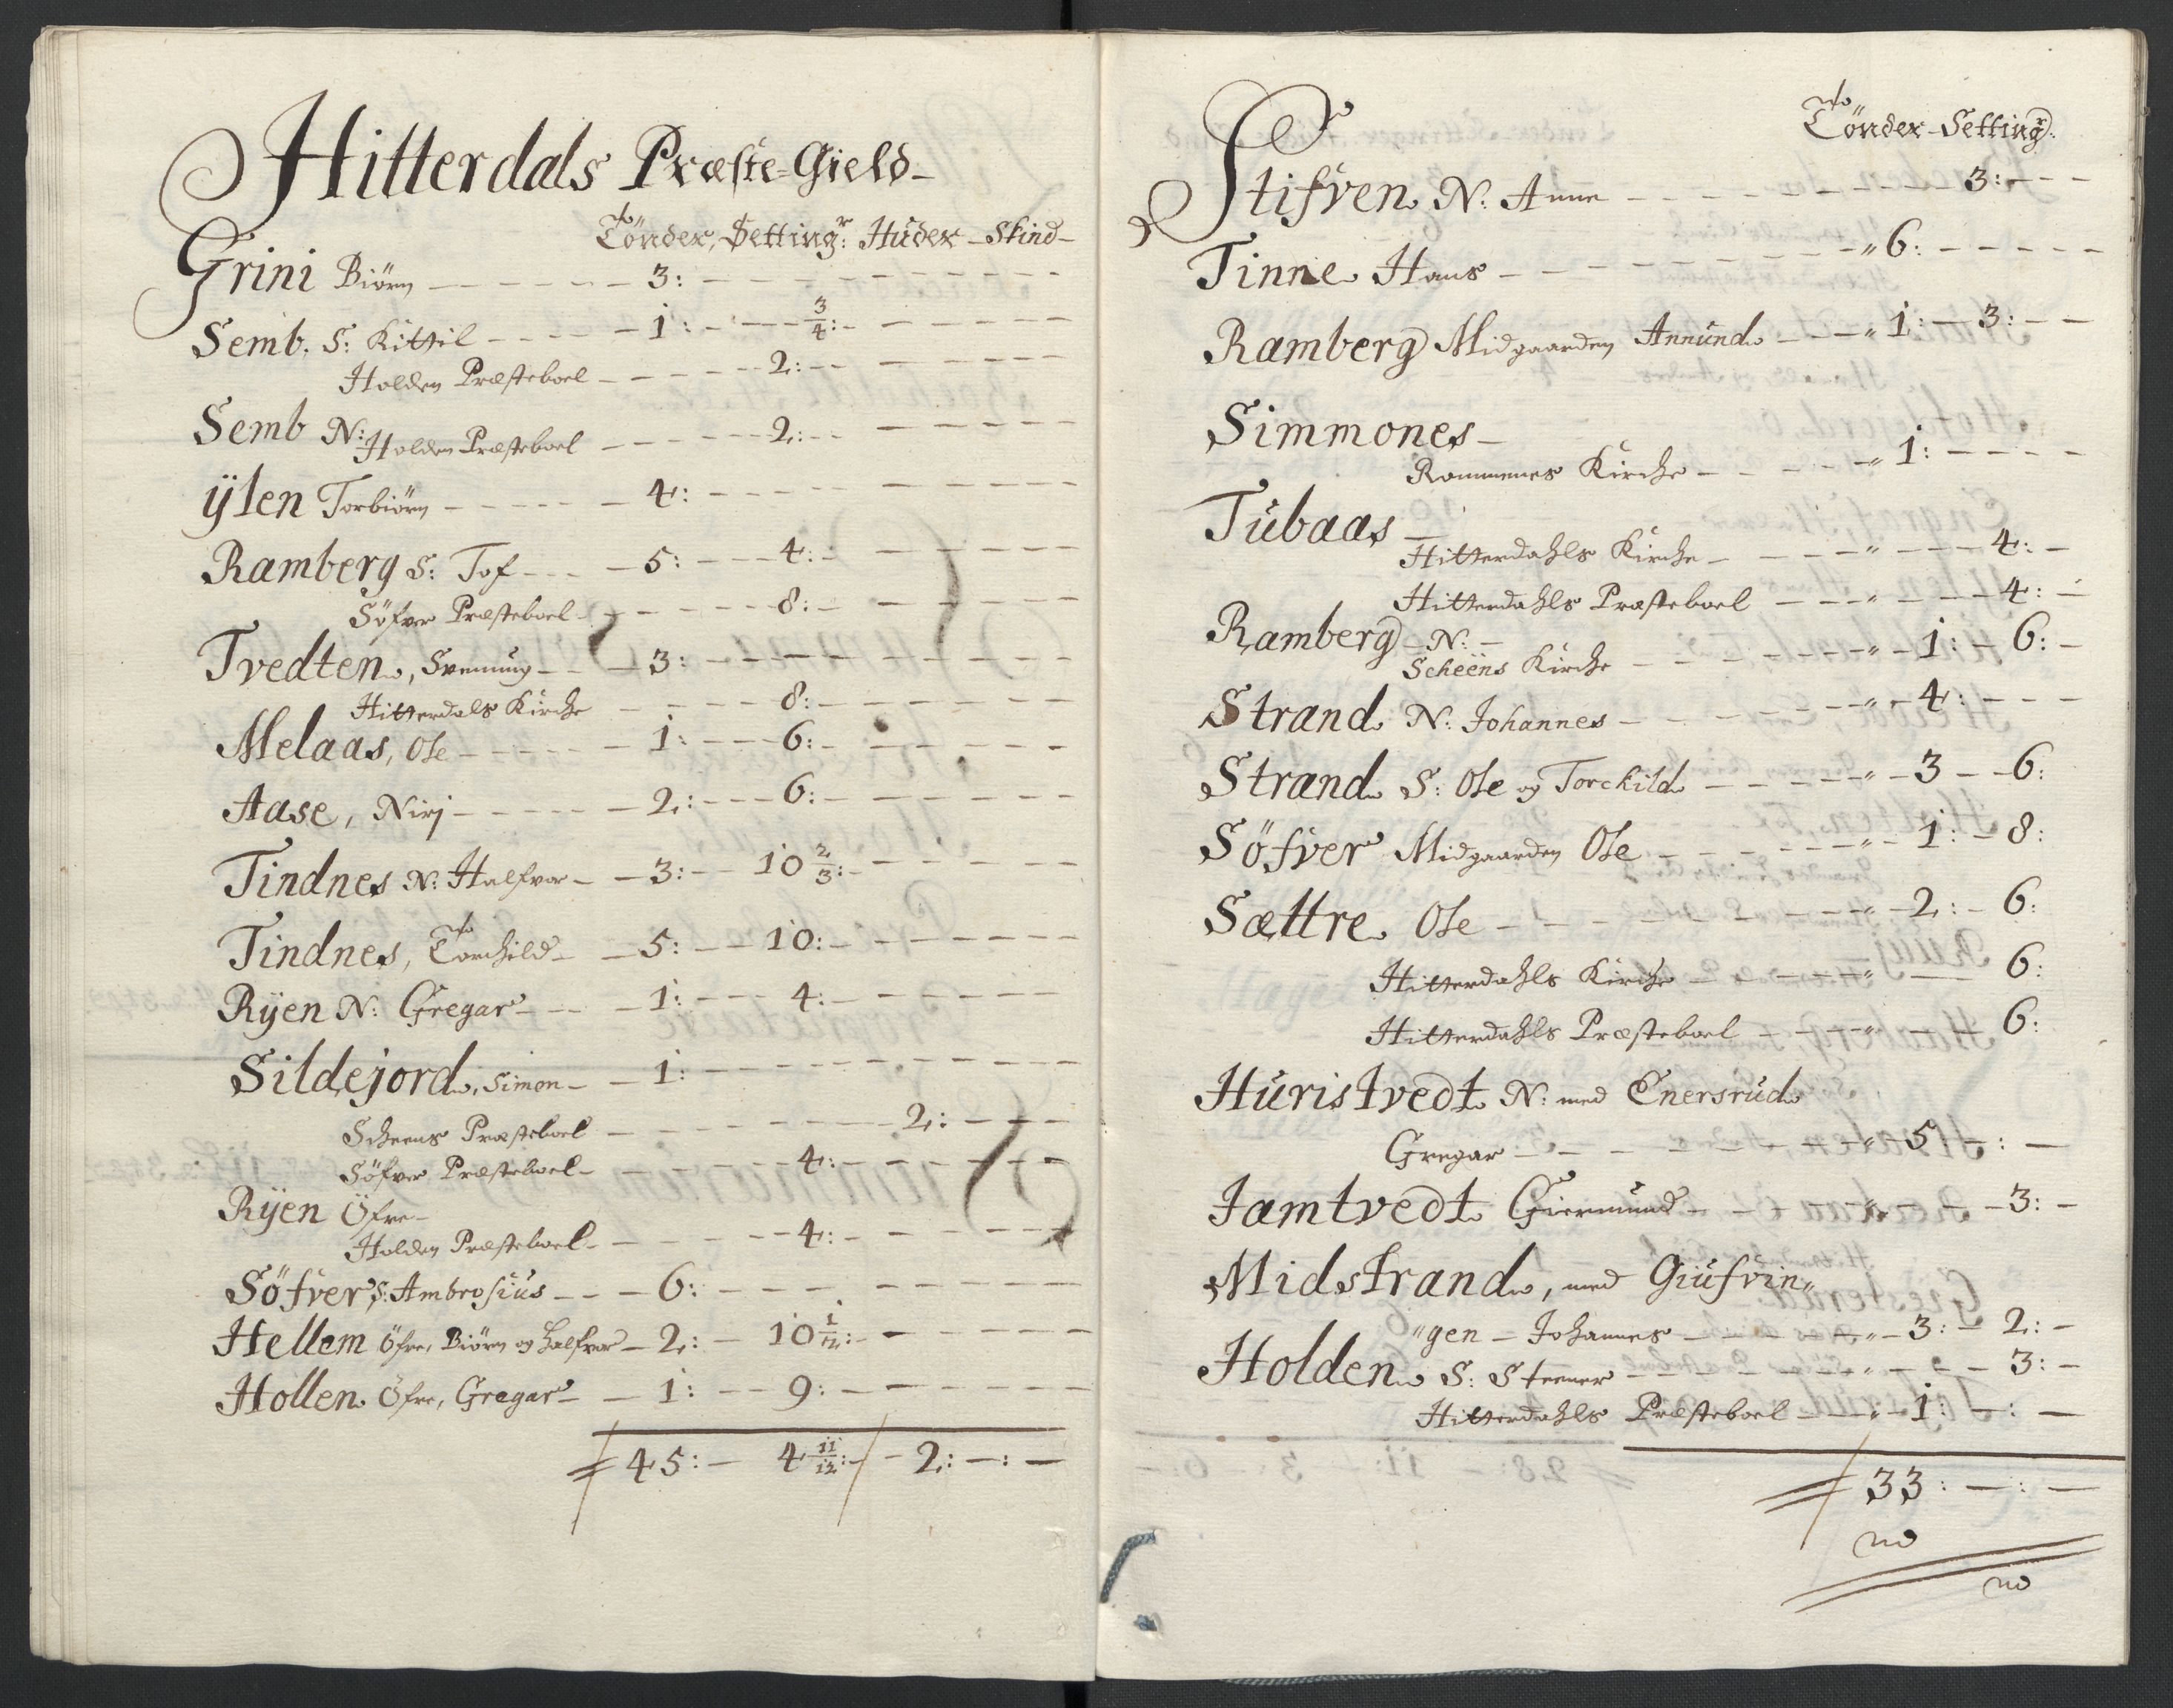 Hitterdals Præste-Gield-
Tönder, Setting^r: Huder - Skind-
Grini Biørn - - - - - - 3: - - - - - - - -
Semb. S: Kittil - - - - 1: - - - 3/4: - - - - -
Holden Præsteboel - - - - - 2: - - - - - -
Semb N:
Holden Præsteboel - - - - - 2: - - - - - -
ÿlen Torbiørn - - - - - - 4: - - - - - - - -
Ramberg S: Tof - - - - 5: - - - 4: - - - - -
Söfver Præsteboel - - - - - 8: - - - - - -
Tvedten, Svenning - - - 3: - - - - - - - -
Hitterdals Kirche - - - - 8: - - - - - -
Melaas, Ole - - - - - - 1: - - - 6: - - - - -
Aase, Nirj - - - - - - 2: - - - 6: - - - - -
Tindnes N: Halfvor - - 3: - - 10 2/3: - - - - -
Tindnes, Torchild - - 5: - - 10: - - - - - -
Rÿen N: Gregar - - - - 1: - - - 4: - - - - -
Sildejord, Simon - - 1: - - - - - - - -
Scheens Præsteboel - - - - - - - 2: - - -
Söfver Præsteboel - - - - - 4: - - - - -
Rÿen Öfre -
Holden Præsteboel - - - - - 4: - - - - -
Söfver S: Ambrosius - - - 6: - - - - - - -
Hellem öfre, Biörn og Halfvor - 2: - 10 1/12: - - - - -
Hollen Öfre, Gregar - - 1: - - 9: - - - - - -
45: - 4 11/12: - - 2: - : -
Tönder - Setting^r:
Stifven N: Anne - - - - - - - 3: - - -
Tinne Hans - - - - - - - - - „ 6: - - - - -
Ramberg Midgaarden Annund - - - „ 1: - 3: - -
Simmones -
Rommenes Kirche - - - - - „ 1: - - - -
Tubaas -
Hitterdahls Kirche - - - - „ - - - 4: -
Hitterdahls Præsteboel - - - „ - - - 4: -
Ramberg N: -
Scheens Kirche - - - - - - „ - 1: - 6: -
Strand N: Johannes - - - - - - „ - 4: - - -
Strand S: Ole og Torckild - - - - - „ - 3 - - 6:
Söfver Midgaarden Ole - - - - - - „ - 1: - 8:
Sættre Ole - - - - - - - - - „ - 2: - 6:
Hitterdahls Kirche - - - - - „ - 6:
Hitterdahls Præsteboel - - - „ - - 6:
Huristvedt N: med Enersrud
Gregar - - - - - - - - „ - 5 - : -
Jamtvedt Giermund - - - - „ - - - 3: -
Midstrand, med Giufvin„
„gen - Johannes - - - - - „ - 3: - 2: -
Holden S: Steener - - - - - „ - - - 3: -
Hitterdahls Præsteboel - - „ - 1: - : -
33: - : -